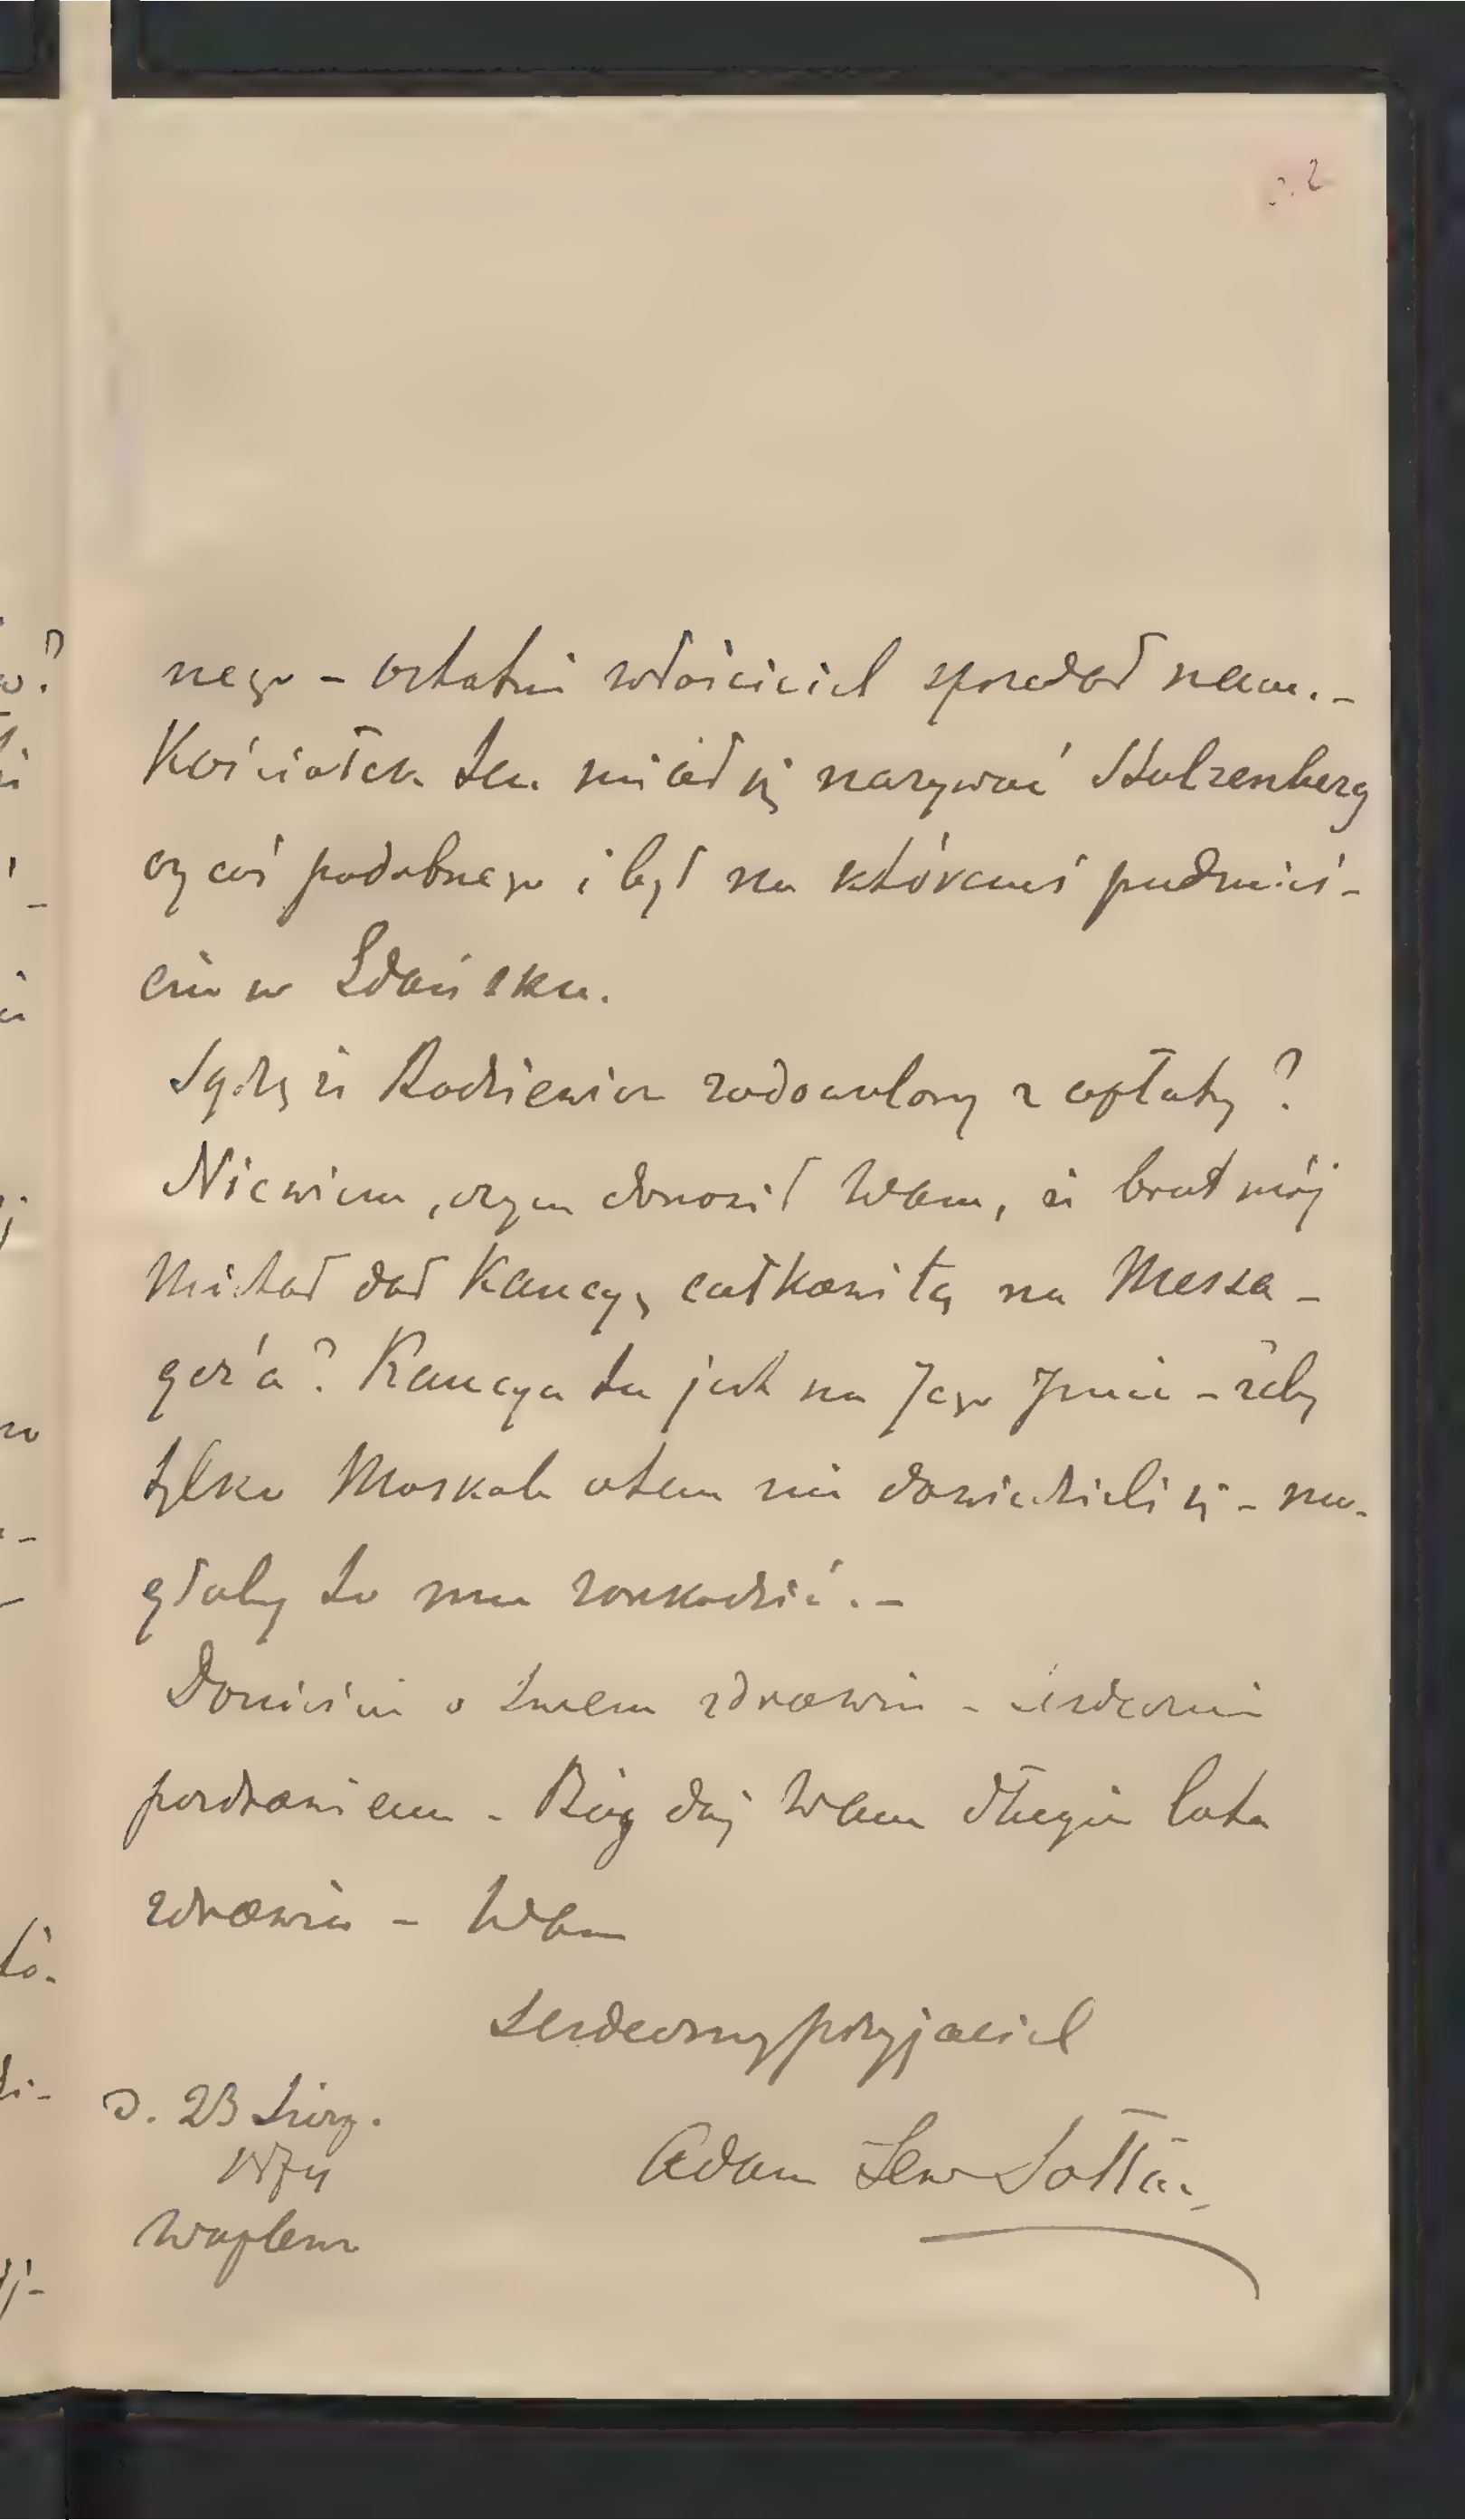 nego – ostatni właściciel sprzedał nam. –
Kościołek ten miał się nazywać Stolzenberg
czy coś podobnego i był na któremś przedmieś-
ciu w Gdańsku.
Sądzę że Rodziewicz zadowolony z opłaty?
Niewiem, czym donosił Wam, że brat mój
Michał dał Kaucyę całkowitą na Messa-
ger'a? Kaucya ta jest na Jego Imie – żeby
tylko Moskale otem nie dowiedzieli się – mo-
głoby to mu zaszkodzić. –
Donieście o swem zdrowiu – serdecznie
pozdrawiam – Bóg daj Wam długie lata
zdrowia – Wam
serdeczny przyjaciel
Adam Lew Sołtan
d. 23 Sierp.
Waplewo